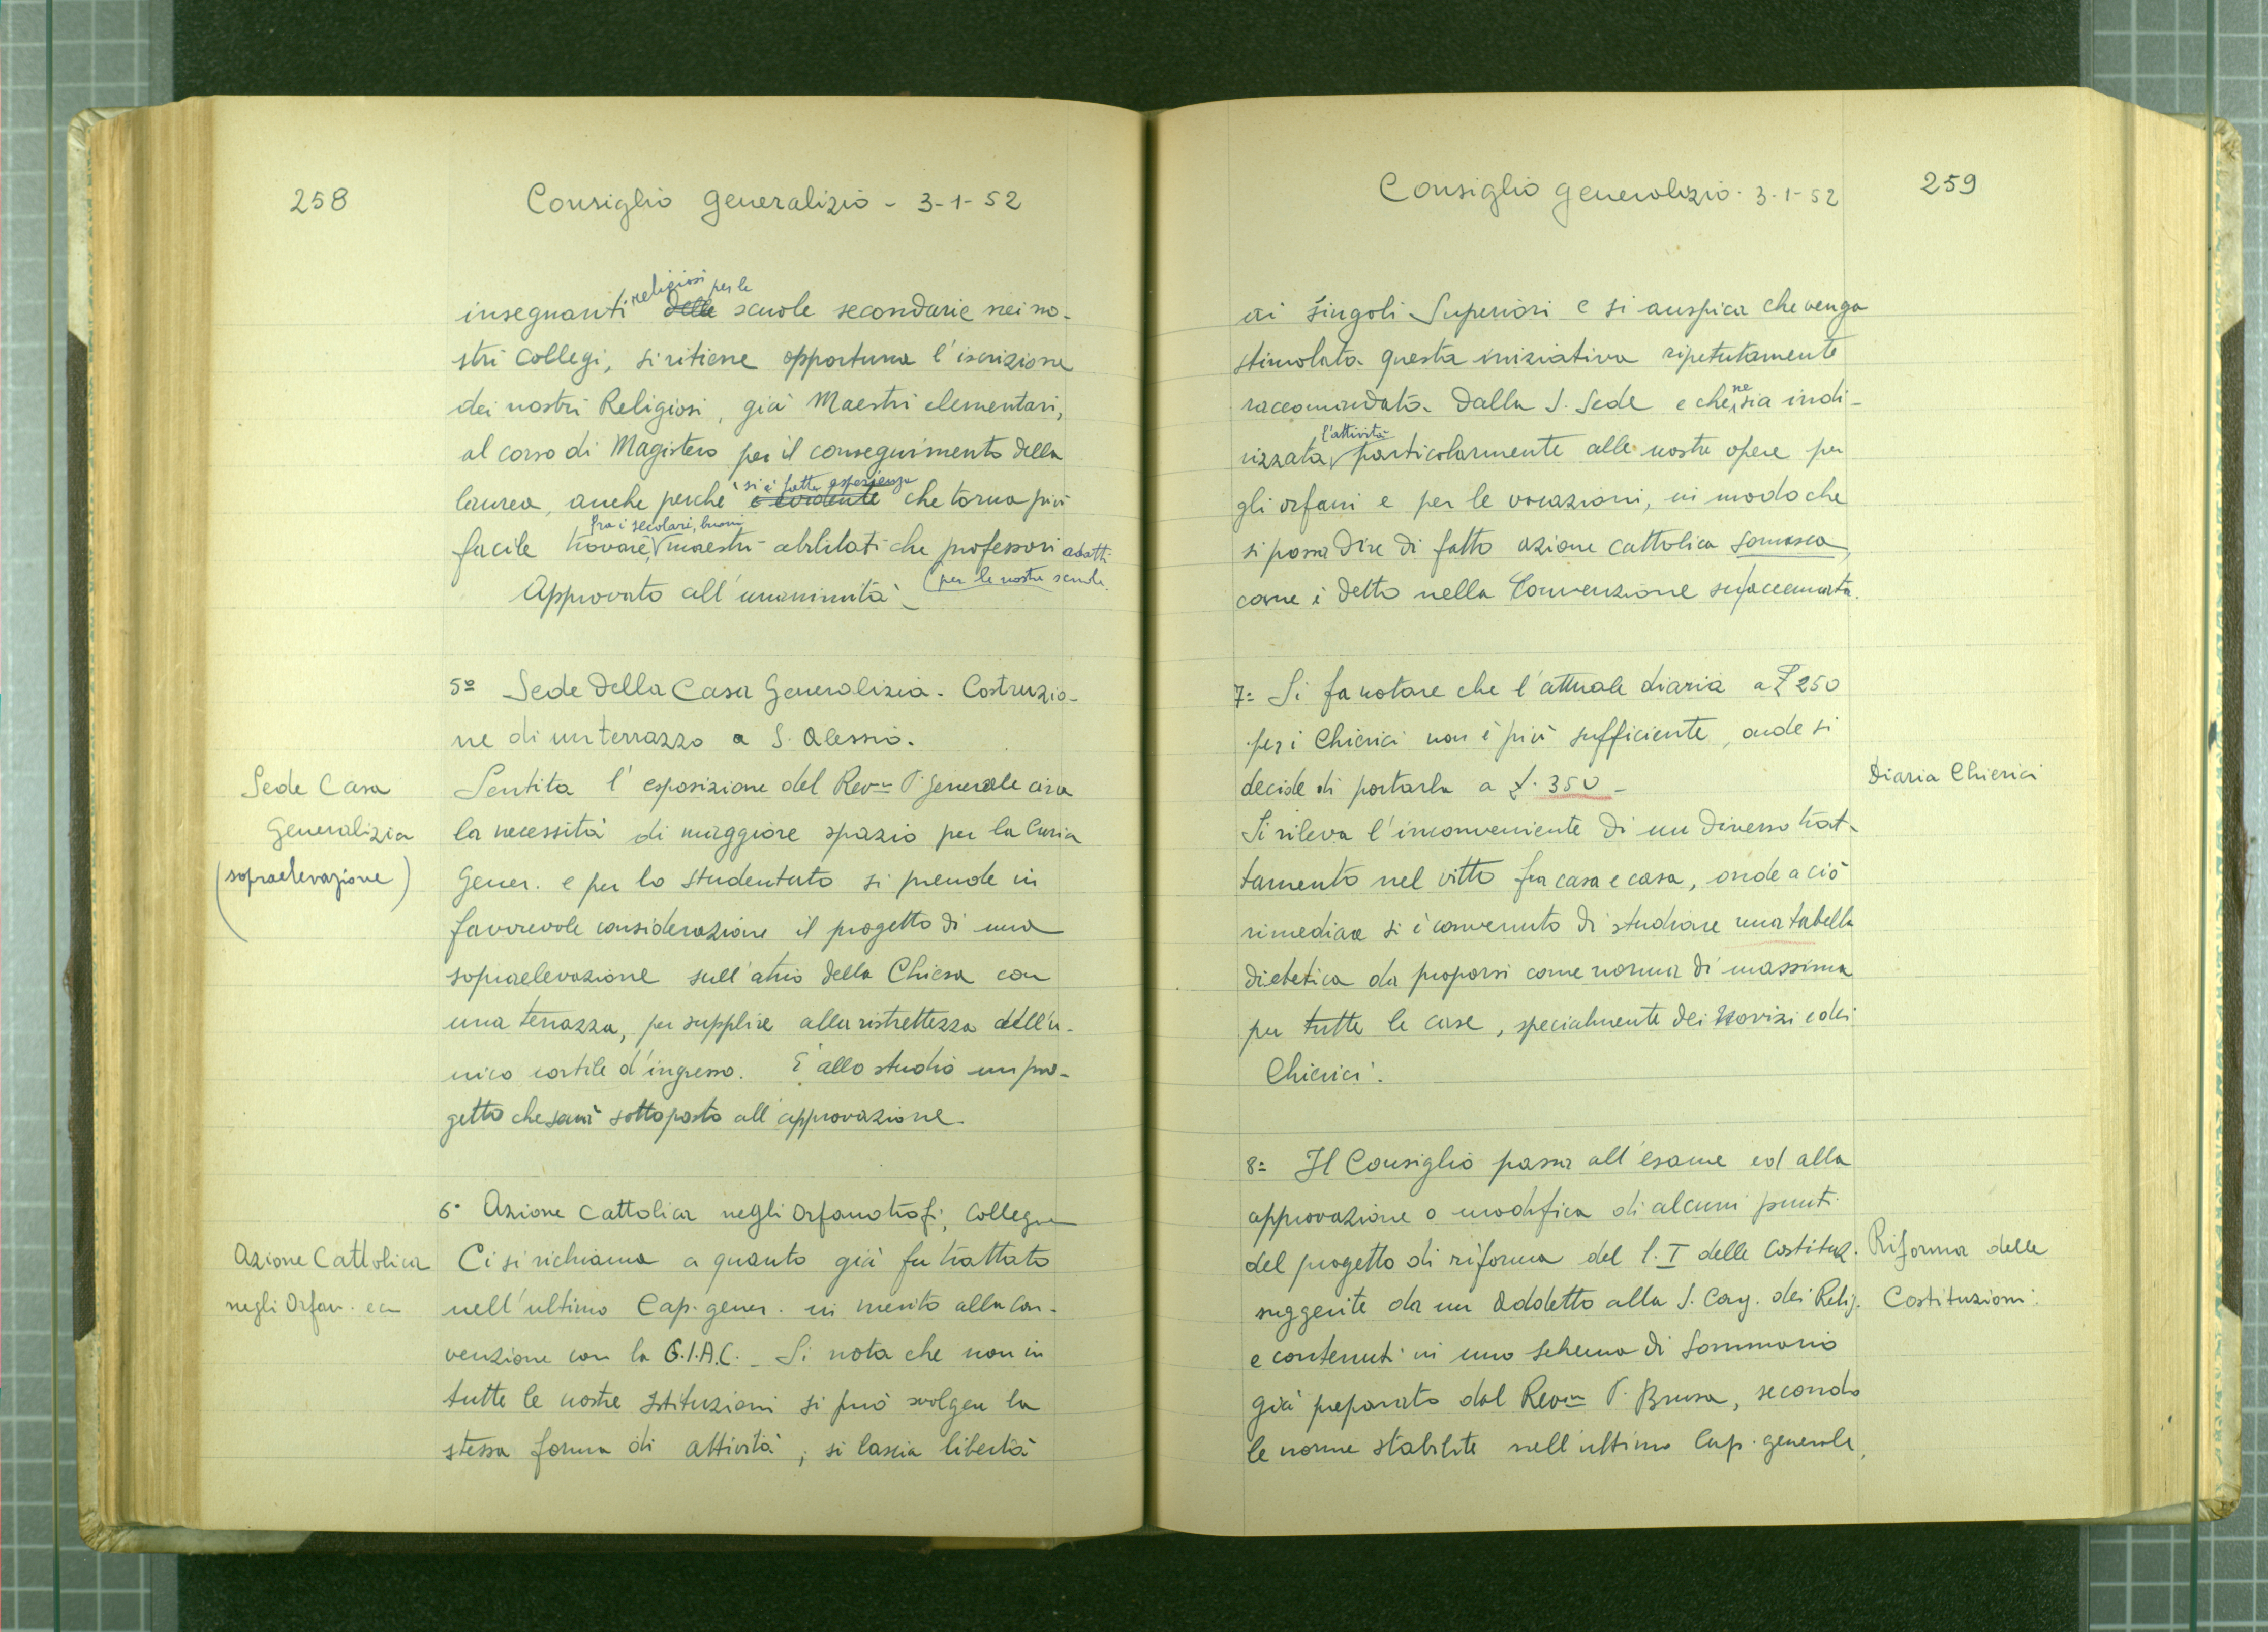 258
Consiglio generalizio - 3-1-52
insegnanti religiosi per le delle scuole secondarie nei no-
stri collegi, si ritiene opportuna l'iscrizione
dei nostri Religiosi, già Maestri elementari,
al corso di Magistero per il conseguimento della
laurea, anche perché si è fatta esperienza è evidente che torna più
facile trovare, fra i secolari, buoni maestri abilitati che professori adatti
(per le nostre scuole.
Approvato all'unanimità.
5º Sede della Casa Generalizia. Costruzio-
ne di un terrazzo a S. Alessio.
Sede Casa
Generalizia
(sopraelevazione)
Sentita l'esposizione del Rev.mo P. Generale circa
la necessità di maggiore spazio per la Curia
Gener. e per lo studentato si prende in
favorevole considerazione il progetto di una
sopraelevazione sull'atrio della Chiesa con
una terrazza, per supplire alla ristrettezza dell'u-
nico cortile d'ingresso. È allo studio un pro-
getto che sarà sottoposto all'approvazione.
6º Azione Cattolica negli Orfanotrofi, Collegi
Azione Cattolica
negli Orfan. ecc
Ci si richiama a quanto già fu trattato
nell'ultimo Cap. gener. in merito alla con-
venzione con la G.I.A.C. - Si nota che non in
tutte le nostre Istituzioni si può svolgere la
stessa forma di attività; si lascia libertà
Consiglio generalizio - 3-1-52
259
ai singoli Superiori e si auspica che venga
stimolata questa iniziativa ripetutamente
raccomandata dalla S. Sede e che ne sia indi-
rizzata l'attività particolarmente alle nostre opere per
gli orfani e per le vocazioni, in modo che
si possa dire di fatto azione cattolica somasca,
come è detto nella Convenzione suaccennata.
7= Si fa notare che l'attuale diaria a £ 250
per i Chierici non è più sufficiente, onde si
decide di portarla a £. 350 -
Diaria Chierici
Si rileva l'inconveniente di un diverso trat-
tamento nel vitto fra casa e casa, onde a ciò
rimediare si è convenuto di studiare una tabella
dietetica da proporsi come norma di massima
per tutte le case, specialmente dei Novizi e dei
Chierici.
8= Il Consiglio passa all'esame ed alla
approvazione o modifica di alcuni punti
del progetto di riforma del l. I delle Costituz.
Riforma delle
Costituzioni.
suggerite da un Addetto alla S. Cong. dei Relig.
e contenuti in uno schema di Sommario
già preparato dal Rev.mo P. Brusa, secondo
le norme stabilite nell'ultimo Cap. generale,